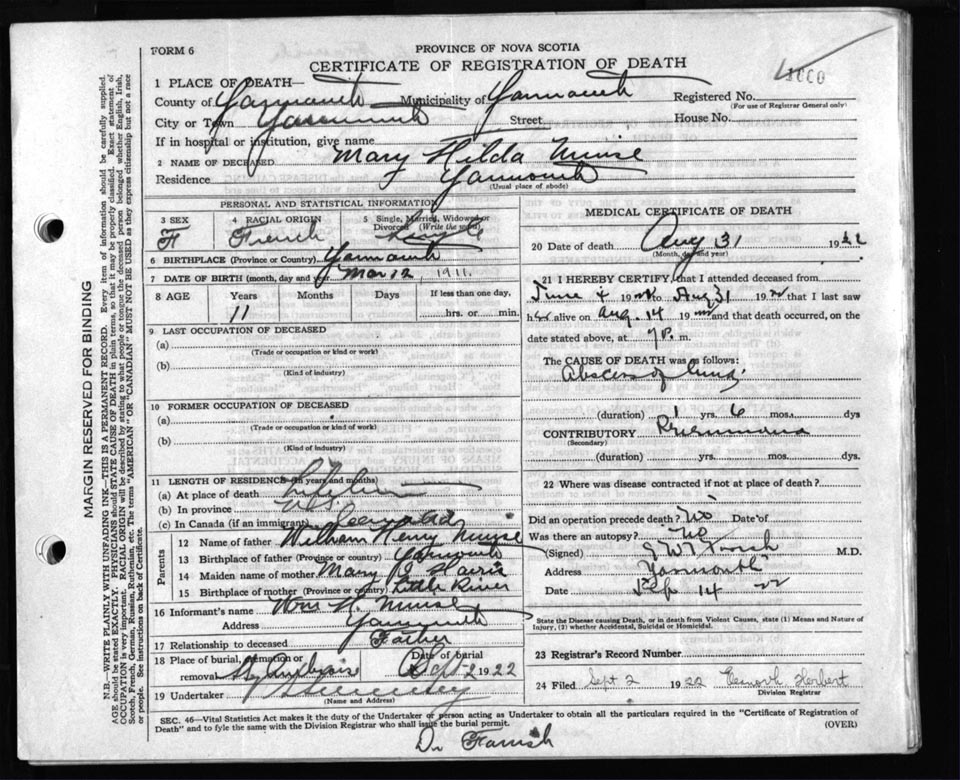 FORM 6
PROVINCE OF NOVA SCOTIA
CERTIFICATE OF REGISTRATION OF DEATH
1000
1 PLACE OF DEATH—
County of Yarmouth Municipality of Yarmouth Registered No.
(For use of Registrar General only)
City or Town Yarmouth Street House No.
If in hospital or institution, give name
2 NAME OF DECEASED Mary Hilda Muise
Residence Yarmouth
(Usual place of abode)
PERSONAL AND STATISTICAL INFORMATION
3 SEX 4 RACIAL ORIGIN 5 Single, Married, Widowed or Divorced (Write the word)
F French Single
6 BIRTHPLACE (Province or Country) Yarmouth
7 DATE OF BIRTH (month, day and year) Mar 12, 1911.
8 AGE Years Months Days If less than one day,
11 hrs. or min.
9 LAST OCCUPATION OF DECEASED
(a)
(Trade or occupation or kind of work)
(b)
(Kind of industry)
10 FORMER OCCUPATION OF DECEASED
(a)
(Trade or occupation or kind of work)
(b)
(Kind of industry)
11 LENGTH OF RESIDENCE (in years and months)
(a) At place of death
(b) In province
(c) In Canada (if an immigrant)
Parents
12 Name of father William Henry Muise
13 Birthplace of father (Province or country) Yarmouth
14 Maiden name of mother Mary J.
15 Birthplace of mother (Province or country) Little River
16 Informant's name Wm H. Muise
Address Yarmouth
17 Relationship to deceased Father
18 Place of burial, cremation or removal Date of burial Sept 2 1922
19 Undertaker
(Name and Address)
MEDICAL CERTIFICATE OF DEATH
20 Date of death Aug 31 1922
(Month, day and year)
21 I HEREBY CERTIFY, that I attended deceased from
June 4 1922 to Aug 31 1922 that I last saw
her alive on Aug. 14 1922 and that death occurred, on the
date stated above, at 7 P. m.
The CAUSE OF DEATH was as follows:
Abscess of lung
(duration) 1 yrs. 6 mos. dys
CONTRIBUTORY Pneumonia
(Secondary)
(duration) yrs. mos. dys.
22 Where was disease contracted if not at place of death?
Did an operation precede death? No Date of
Was there an autopsy? No
(Signed) M.D.
Address Yarmouth
Date Sep 14 22
State the Disease causing Death, or in death from Violent Causes, state (1) Means and Nature of Injury, (2) whether Accidental, Suicidal or Homicidal.
23 Registrar's Record Number
24 Filed Sept 2 1922 Herbert
Division Registrar
SEC. 46—Vital Statistics Act makes it the duty of the Undertaker or person acting as Undertaker to obtain all the particulars required in the "Certificate of Registration of
Death" and to fyle the same with the Division Registrar who shall issue the burial permit. (OVER)
Dr Farish
MARGIN RESERVED FOR BINDING
N.B.—WRITE PLAINLY WITH UNFADING INK—THIS IS A PERMANENT RECORD. Every item of information should be carefully supplied.
AGE should be stated EXACTLY. PHYSICIANS should STATE CAUSE OF DEATH in plain terms, so that it may be properly classified. Exact statement of
OCCUPATION is very important. RACIAL ORIGIN will be described by stating to what people or tongue the deceased person belonged whether English, Irish,
Scotch, French, German, Russian, Ruthenian, etc. The terms "AMERICAN" OR "CANADIAN" MUST NOT BE USED as they express citizenship but not a race
or people. See instructions on back of Certificate.